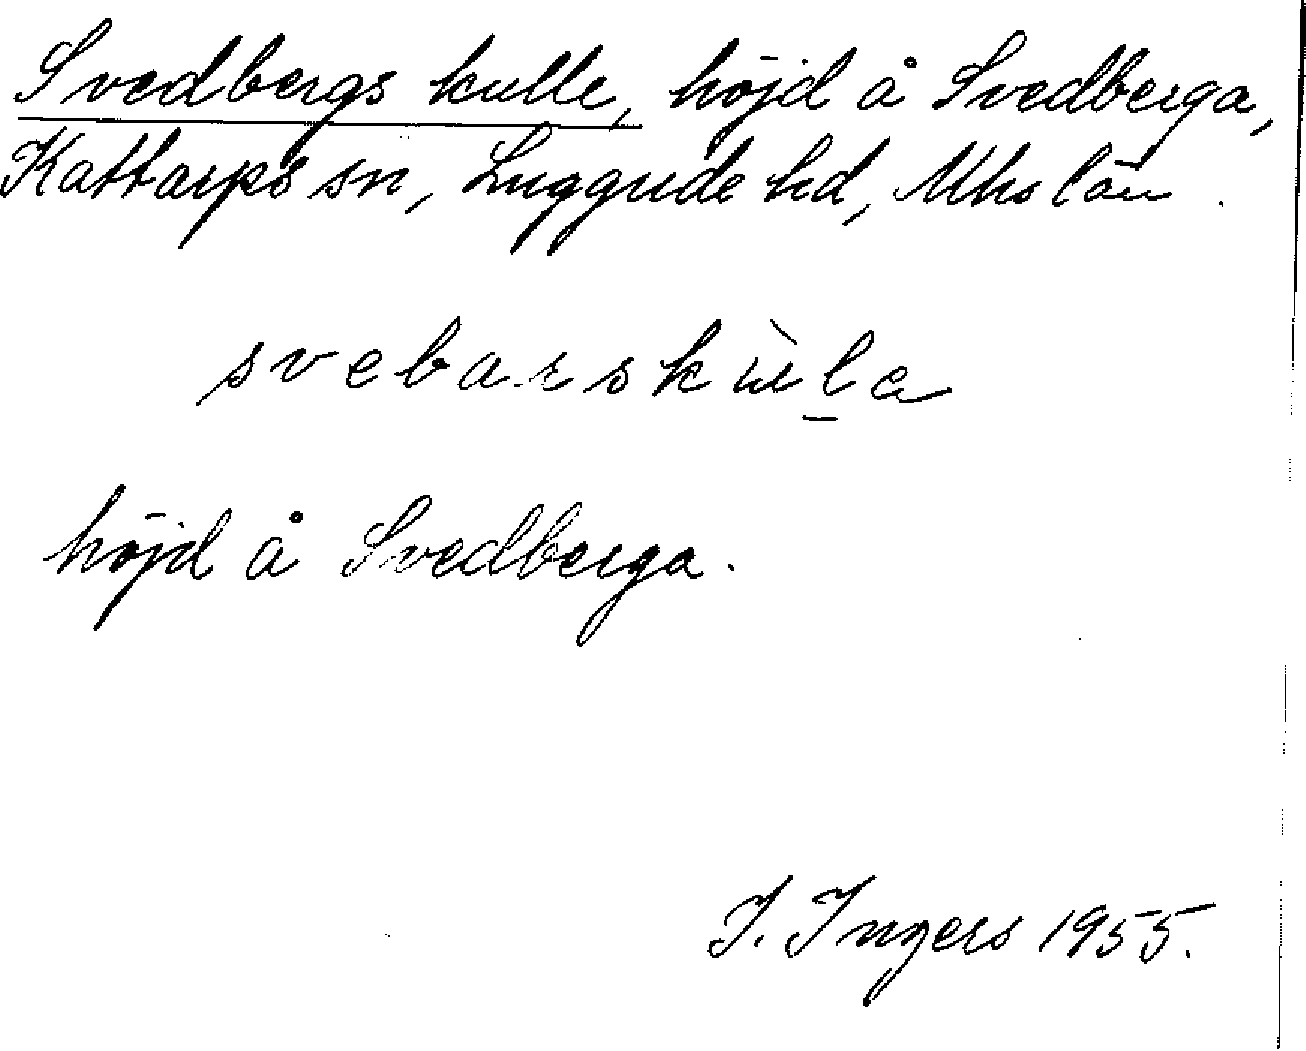 Svedbergs kulle, höjd å Svedberga,
Kattarps sn, Luggude hd, Mhs län.
svebarskùl̠a
höjd å Svedberga.
I. Ingers 1955.